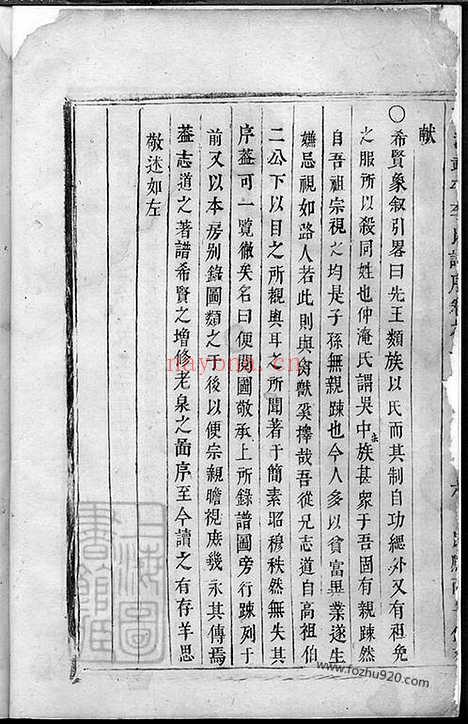 献
○希賢象叙引畧曰先王類族以氏而其制自功緦外又有袒免
之服所以殺同姓也仲淹氏謂吴中族甚衆于吾固有親踈然
自吾祖宗視之均是子孫無親踈也今人多以貧富異業遂生
嫌忌視如路人若此則與禽獸奚擇哉吾從兄志道自高祖伯
二公下以目之所覩與耳之所聞著于簡素昭穆秩然無失其
序葢可一覽徹矣名曰便閱圖敬承上所錄譜圖旁行踈列于
前又以本房别錄圖類之于後以便宗親瞻視庶幾永其傳焉
葢志道之著譜希賢之增修老泉之啚序至今讀之有存羊思
敬述如左
上海圖書館藏
nayona.cn
https://www.fozhu920.com/